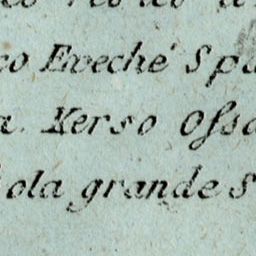 co Eveché Spa
a. Kerso Oſsa
ola grande S